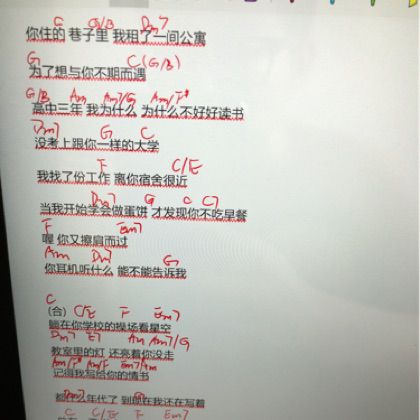 C G/B Dm7
你住的 巷子里 我租了一间公寓
G C(G/B)
为了想与你不期而遇
G/B Am Am7/G Am/F#
高中三年 我为什么 为什么不好好读书
Dm7 G C
没考上跟你一样的大学
F C/E
我找了份工作 离你宿舍很近
Dm7 G C C7
当我开始学会做蛋饼 才发现你不吃早餐
F Em7
喔 你又擦肩而过
Am Dm7 G
你耳机听什么 能不能告诉我
C
(合) C/E F Em7
躺在你学校的操场看星空
Dm7 E7 Am Am7/G
教室里的灯 还亮着你没走
Am/F# Am/F Em7 Am
记得我写给你的情书
Dm7 G
都什么年代了 到现在我还在写着
C C/E F Em7